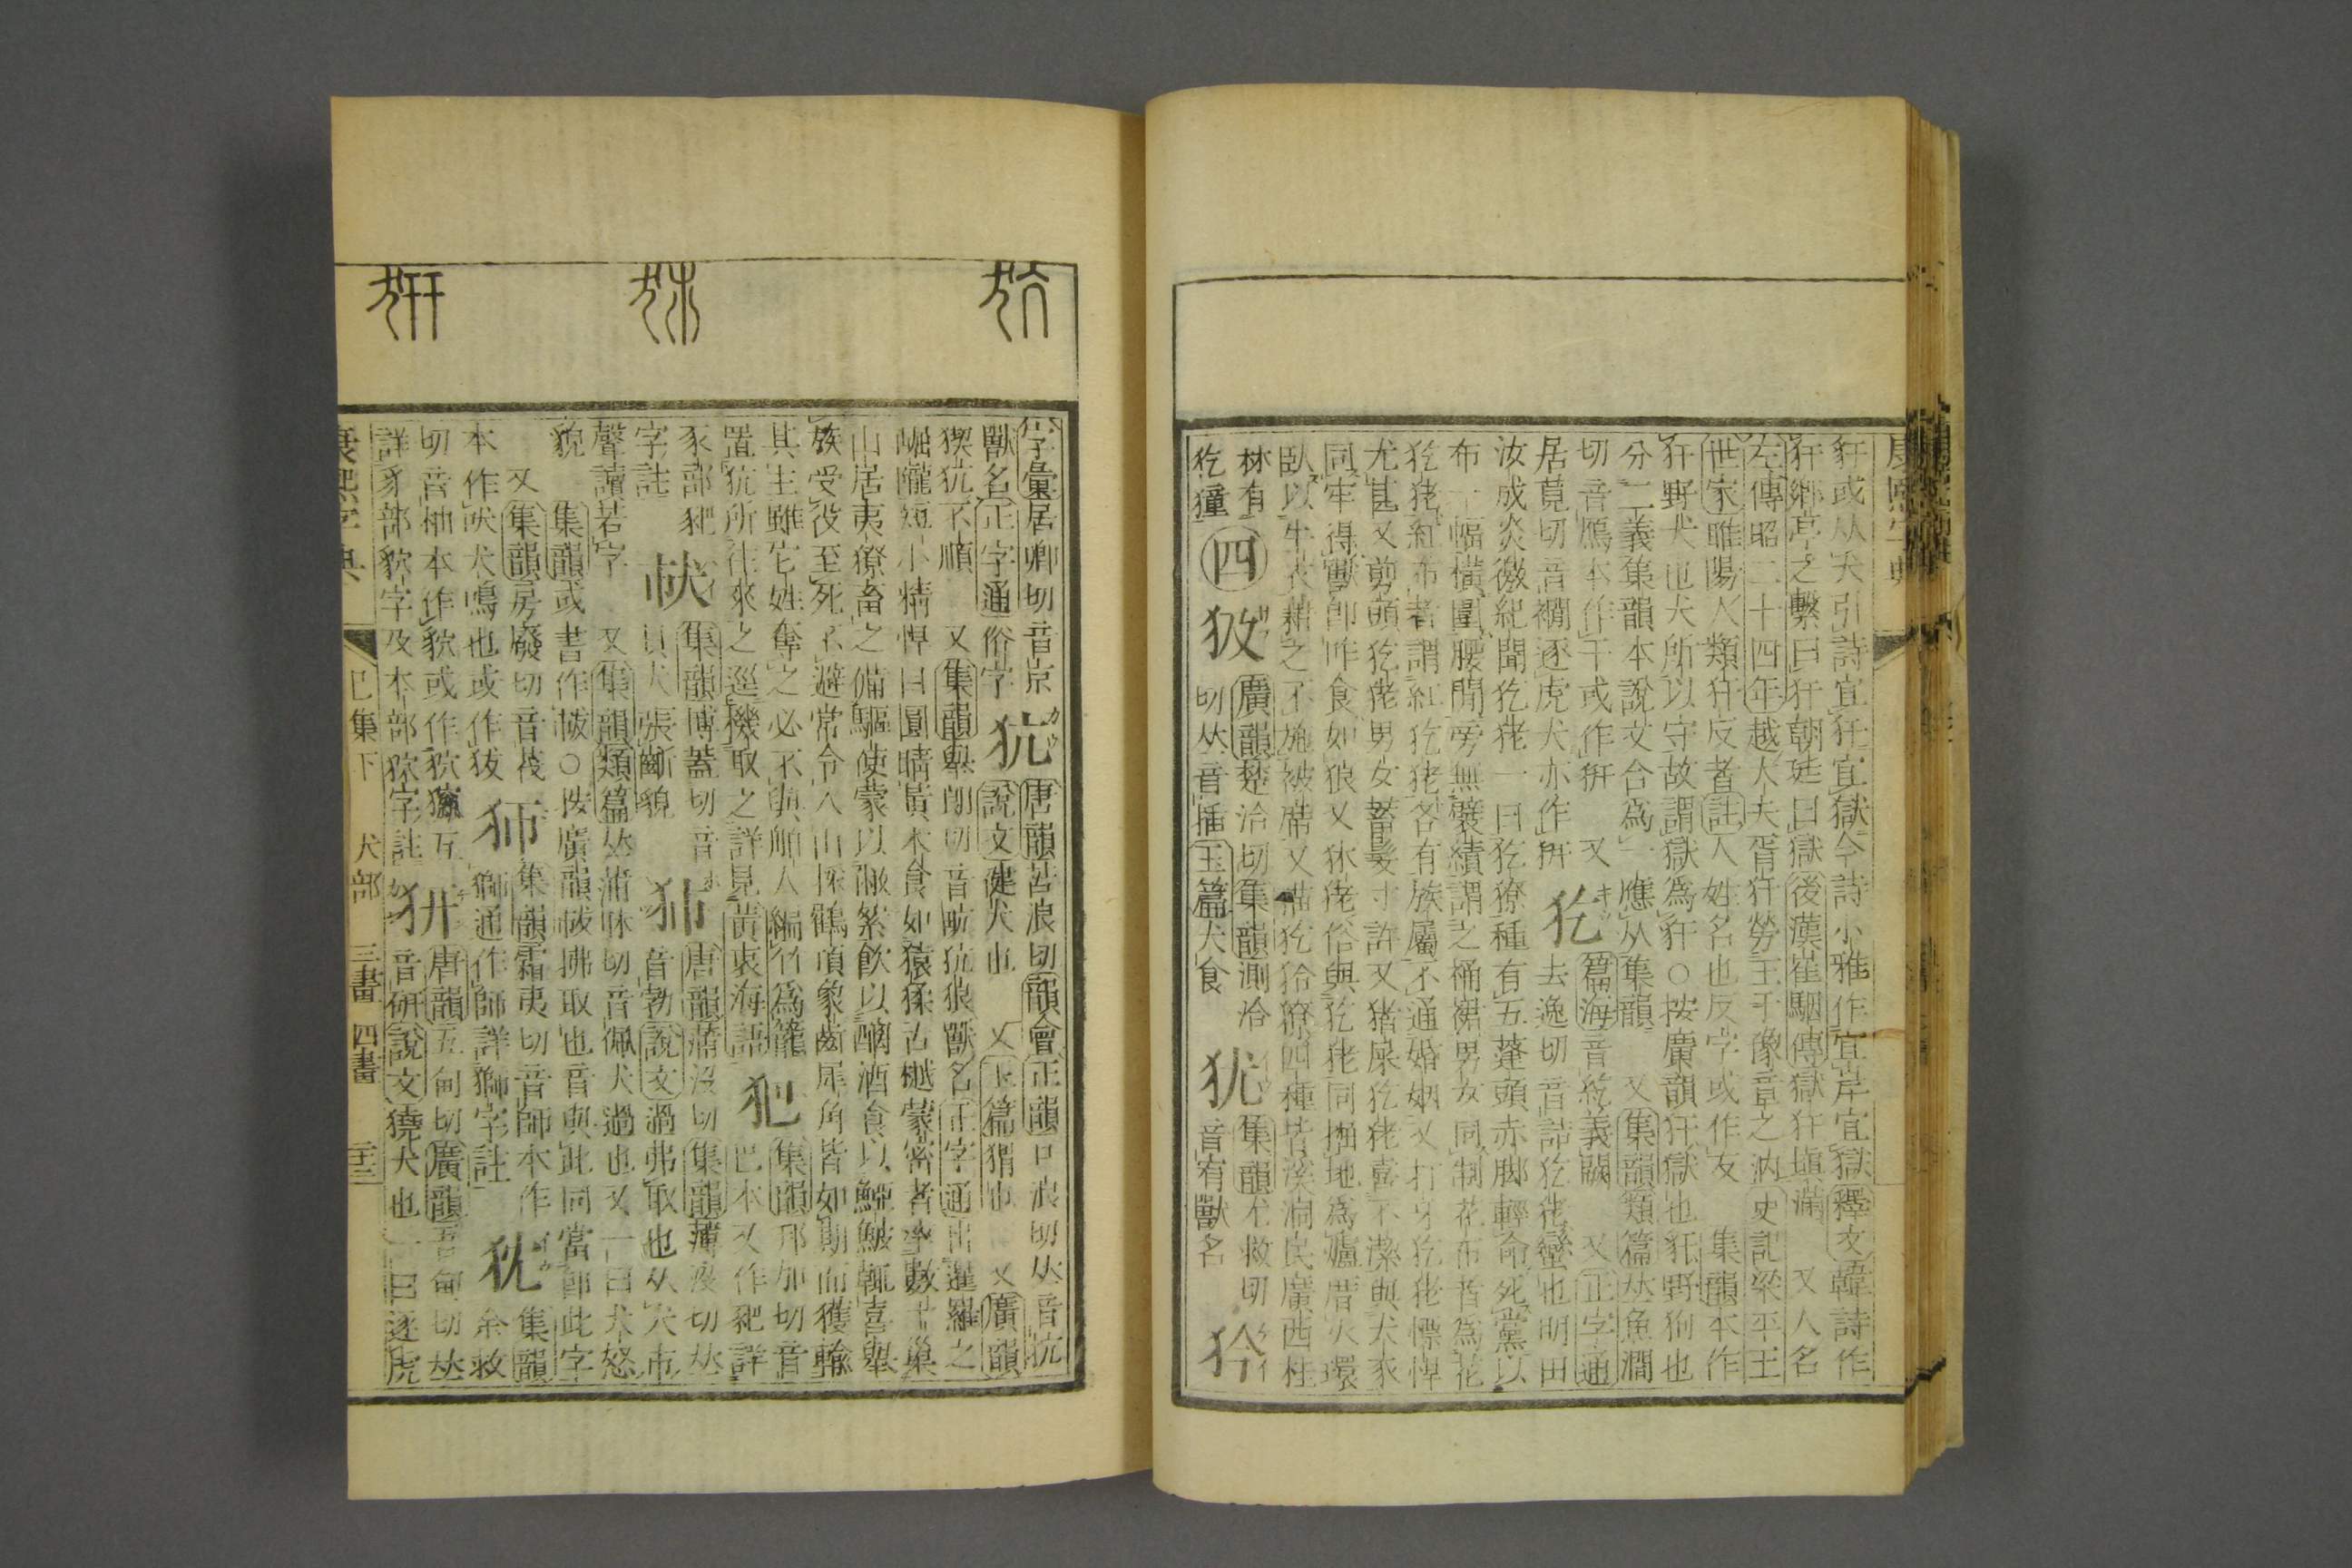 豻或从犬引詩宜犴宜獄今詩小雅作宜岸宜獄釋文韓詩作
犴鄉亭之繫曰犴朝廷曰獄後漢崔駰傳獄犴塡滿　又人名
左傳昭二十四年越大夫胥犴勞王于豫章之汭史記梁平王
世家睢陽人類犴反者註人姓名也反字或作友　集韻本作
豻野犬也犬所以守故謂獄爲犴○按廣韻犴獄也豻野狗也
分二義集韻本說文合爲一應从集韻　又集韻類篇𠀤魚澗
切音鴈本作干或作犴　又篇海音紇義闕　又正字通
居莧切音襉逐虎犬亦作豣　犵去逸切音詰犵狫蠻也明田
汝成炎徼紀聞犵狫一曰犵獠種有五蓬頭赤脚輕命死黨以
布一幅橫圍腰閒旁無襞績謂之桶裙男女同制花布者爲花
犵狫紅布者謂紅犵狫各有族屬不通婚姻又打牙犵狫慓悍
尤甚又剪頭犵狫男女蓄髮寸許又猪屎犵狫喜不潔與犬豕
同牢得獸卽咋食如狼又狇狫俗與犵狫同掘地爲爐厝火環
臥以牛衣藉之不施被席又猫犵狑獠四種皆溪洞民廣西桂
林有犵獞
四
犮　廣韻楚洽切集韻測洽切𠀤音插玉篇犬食
犹　集韻尤救切音宥獸名
狑
字彙居卿切音京獸名正字通俗字
犺　唐韻苦浪切韻會正韻口浪切𠀤音抗說文健犬也　又玉篇猬也　又廣韻
猰犺不順　又集韻舉朗切音䴚犺狼獸名正字通出暹羅之
崛隴短小精悍目圓睛黃木食如猿猱古樾蒙密者率數十巢
山居夷獠畜之備驅使蒙以敝絮飮以醨酒食以鯹鮁輒喜舉
族受役至死不避常令入山探鶴頂象齒犀角皆如期而獲輸
其主雖它姓奪之必不與舶人編竹爲籠
置犺所往來之逕機取之詳見黃衷海語
犯　集韻邦加切音巴本又作豝詳
豕部豝字註
㹝　集韻博蓋切音貝犬張齗貌
㹀　唐韻蒲沒切集韻薄沒切𠀤音勃說文過弗取也从犬巿
聲讀若孛　又集韻類篇𠀤蒲昧切音佩犬過也又一曰犬怒
貌　集韻或書作㹝○按廣韻㹝拂取也音與此同當卽此字
又集韻房廢切音筏本作吠犬鳴也或作犮
狮　集韻霜夷切音師本作獅通作師詳獅字註
狖　集韻余救
切音柚本作貁或作㹨獠互
詳豸部貁字及本部㹨字註
豣　唐韻五甸切廣韻吾甸切𠀤音硏說文獟犬也一曰逐虎
康熙字典　巳集下　犬部　三畫　四畫